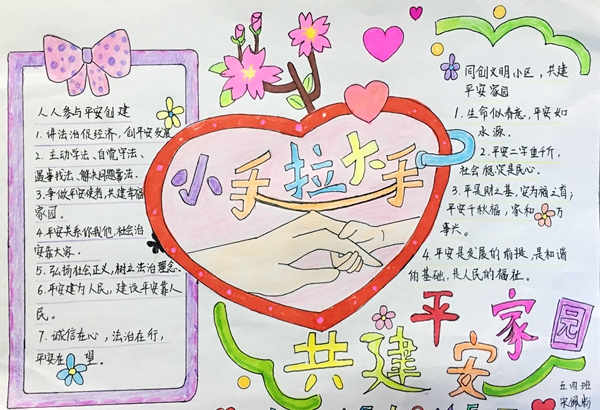 小手拉大手
共建平安家园
人人参与平安创建
1. 讲法治促经济，创平安发展
2. 主动学法、自觉守法、
遇事找法、解决问题靠法。
3. 争做平安使者，共建幸福
家园。
4. 平安关系你我他，社会治
安靠大家。
5. 弘扬社会正义，树立法治理念。
6. 平安建为人民，建设平安靠人
民。
7. 诚信在心，法治在行，
平安在 望。
同创文明小区，共建
平安家园
1. 生命似春花，平安如
水源。
2. 平安二字重千斤，
社会稳定是民心。
3. 平是财之基，安为福之首，
平安千秋福，家和 万
事兴。
4. 平安是发展的前提，是和谐
的基础，是人民的福祉。
五四班